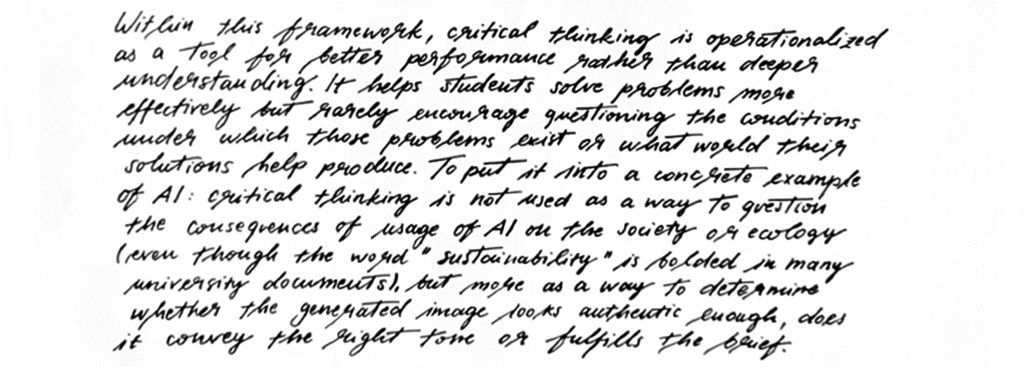 Within this framework, critical thinking is operationalized
as a tool for better performance rather than deeper
understanding. It helps students solve problems more
effectively but rarely encourage questioning the conditions
under which those problems exist or what world their
solutions help produce. To put it into a concrete example
of AI: critical thinking is not used as a way to question
the consequences of usage of AI on the society or ecology
(even though the word "sustainability" is bolded in many
university documents), but more as a way to determine
whether the generated image looks authentic enough, does
it convey the right tone or fulfills the brief.